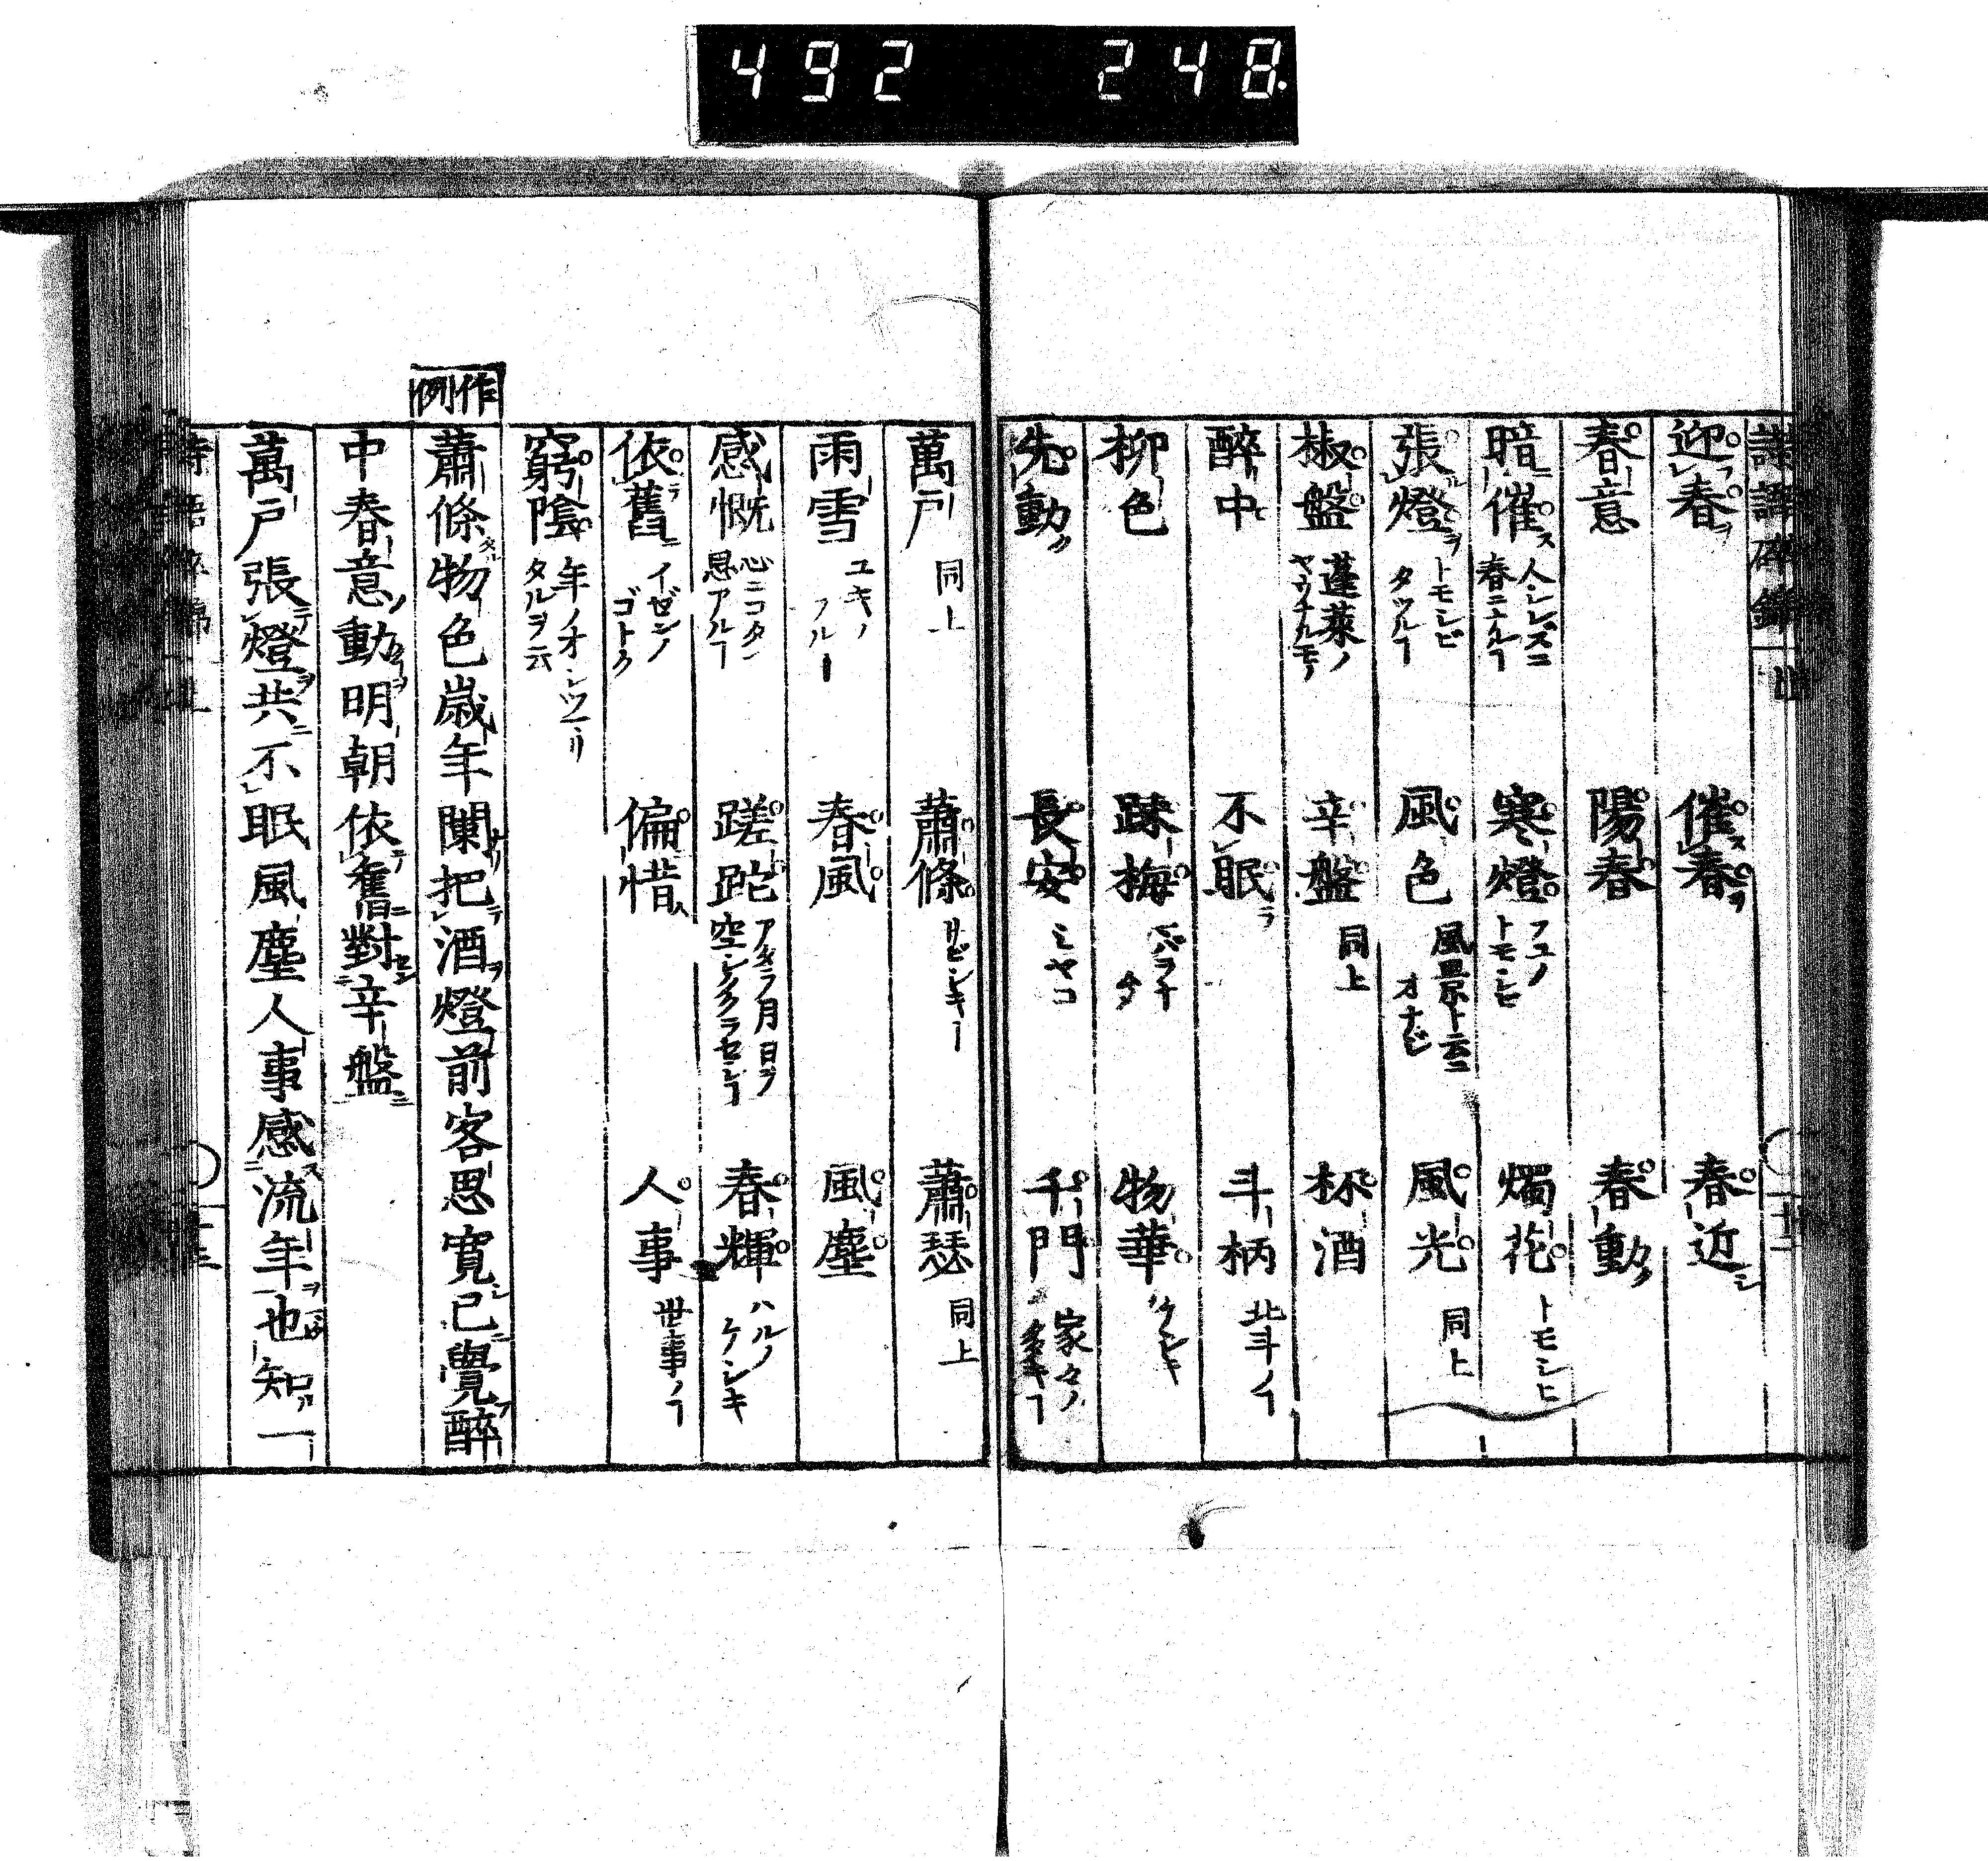 492 248.
迎春 催春 春近
春意 陽春 春動
暗催 人シレズニ春ニナルヿ 寒燈 フユノトモシビ 燭花 トモシヒ
張燈 トモシビタツルヿ 風色 風景ト云ニオナジ 風光 同上
椒盤 蓬莱ノヤウナルモノ 辛盤 同上 杯酒
醉中 不眠 斗柄 北斗ノヿ
柳色 踈梅 物華 ケシキ
先動 長安 ミヤコ 千門 家々ノ多キヿ
萬戸 同上 蕭條 サビシキ 蕭瑟 同上
雨雪 ユキノフル 春風 風塵
感慨 心ニコタヘ思アルヿ 蹉跎 アタラ月日ヲ空シククラセシヿ 春輝 ハルノケシキ
依舊 イゼンノゴトク 偏惜 人事 世事ノヿ
窮陰 年ノオシツマリタルヲ云
作例
蕭條物色歳年闌把酒燈前客思寛已覺醉
中春意動明朝依舊對辛盤
萬戸張燈共不眠風塵人事感流年也知一